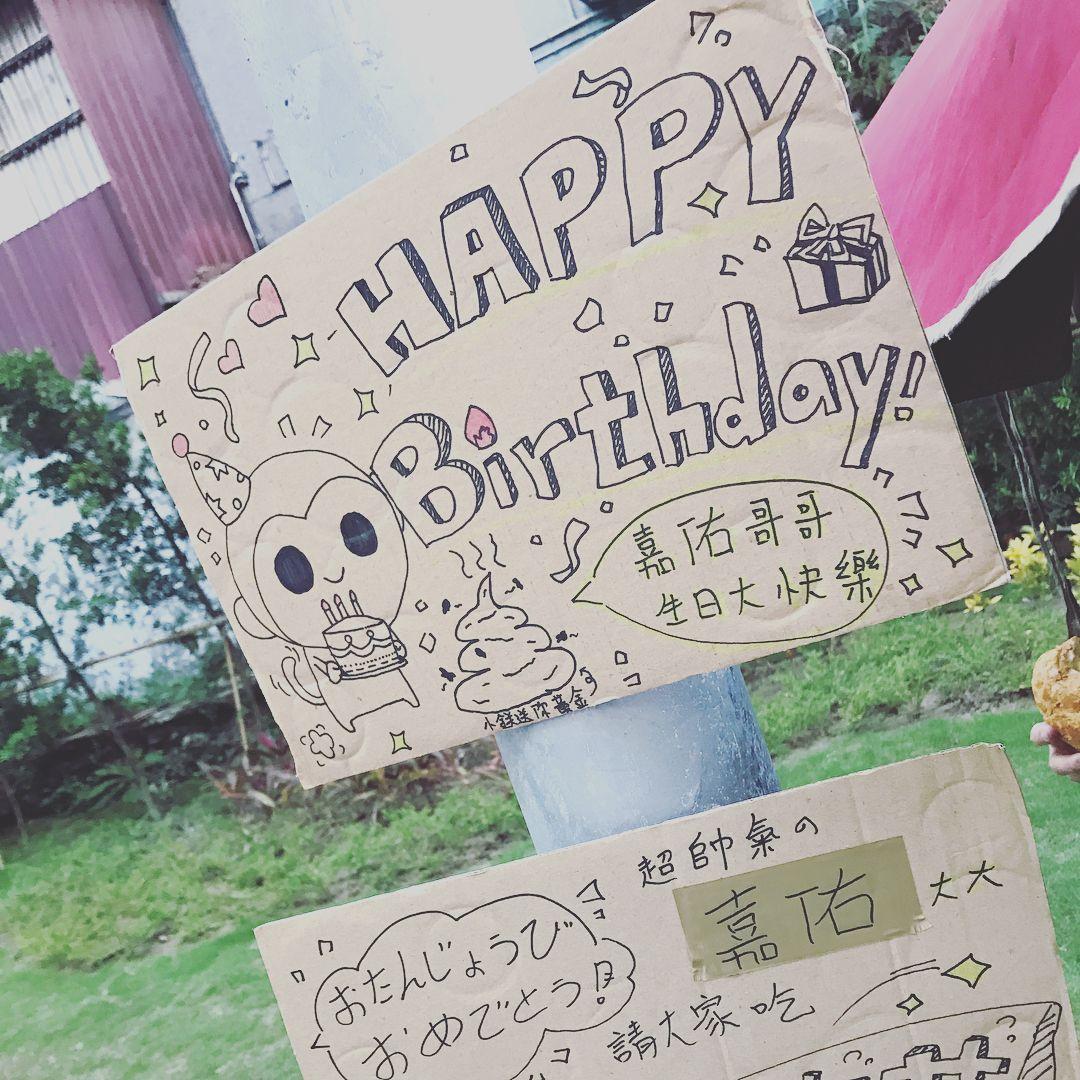 HAPPY
Birthday!
嘉佑哥哥
生日大快樂
小鎂送你黃金
超帥氣の
嘉佑大大
おたんじょうび
おめでとう!
請大家吃